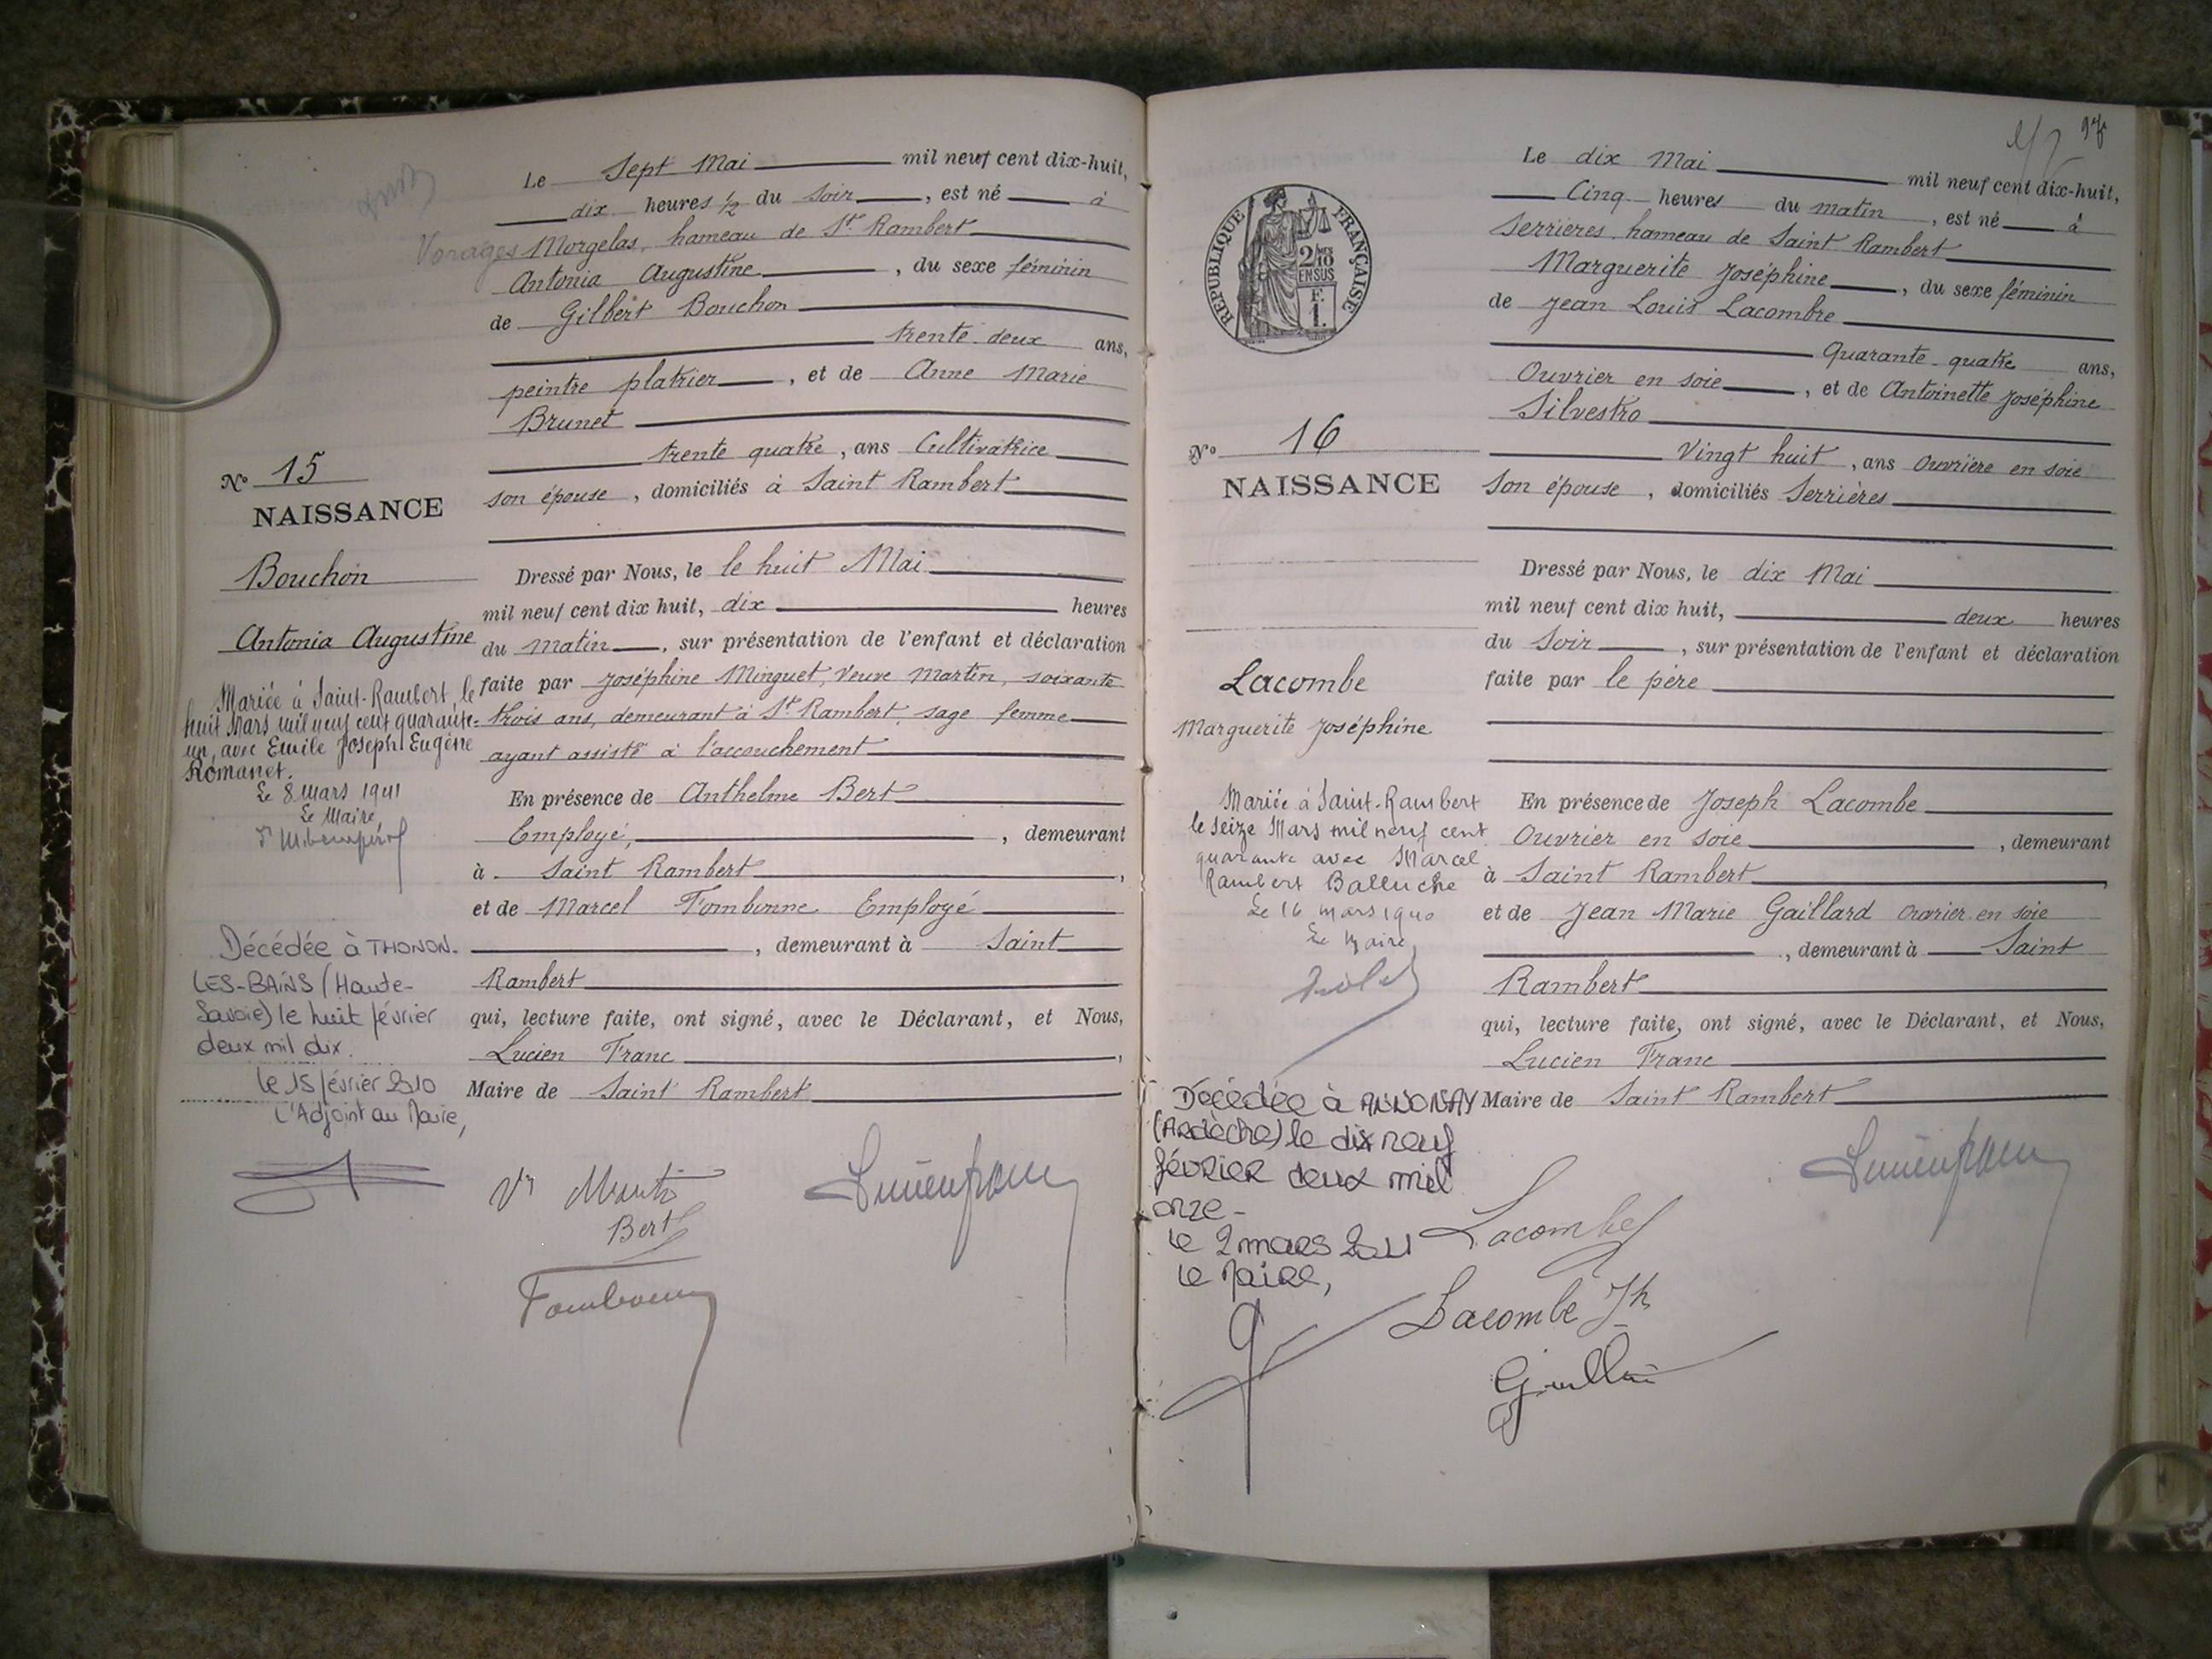 Le Sept Mai mil neuf cent dix-huit,
dix heures ½ du soir, est né à
Vorages Morgelas, hameau de St Rambert
Antonia Augustine, du sexe féminin
de Gilbert Bouchon
trente deux ans,
peintre platrier, et de Anne Marie
Brunet
trente quatre, ans Cultivatrice
son épouse, domiciliés à Saint Rambert
No 15
NAISSANCE
Bouchon
Antonia Augustine
Mariée à Saint-Rambert, le
huit Mars mil neuf cent quarante-
un, avec Emile Joseph Eugène
Romanet.
Le 8 Mars 1941
Le Maire
Décédée à THONON-
LES-BAINS (Haute-
Savoie) le huit février
deux mil dix.
le 15 février 2010
L'Adjoint au Maire,
Dressé par Nous, le le huit Mai
mil neuf cent dix huit, dix heures
du matin, sur présentation de l'enfant et déclaration
faite par Joséphine Minguet, Veuve Martin, soixante
trois ans, demeurant à St Rambert, sage femme
ayant assisté à l'accouchement
En présence de Anthelme Bert
Employé, demeurant
à Saint Rambert,
et de Marcel Fombonne Employé
, demeurant à Saint
Rambert
qui, lecture faite, ont signé, avec le Déclarant, et Nous,
Lucien Franc,
Maire de Saint Rambert
Bert
97
Le dix Mai mil neuf cent dix-huit,
Cinq heures du matin, est né à
Serrières hameau de Saint Rambert
Marguerite Joséphine, du sexe féminin
de Jean Louis Lacombre
Quarante quatre ans,
Ouvrier en soie, et de Antoinette Joséphine
Silvestro
Vingt huit, ans Ouvrière en soie
Son épouse, domiciliés Serrières
REPUBLIQUE FRANÇAISE
2/10
EN SUS
F.
1.
No 16
NAISSANCE
Lacombe
Marguerite Joséphine
Mariée à Saint-Rambert
le seize Mars mil neuf cent
quarante avec Marcel
Rambert Balluche
Le 16 mars 1940
Le Maire
Décédée à ANNONAY
(Ardèche) le dix neuf
février deux mil
onze-
le 2 mars 2011
le Maire,
Dressé par Nous, le dix Mai
mil neuf cent dix huit, deux heures
du Soir, sur présentation de l'enfant et déclaration
faite par le père
En présence de Joseph Lacombe
Ouvrier en soie, demeurant
à Saint Rambert,
et de Jean Marie Gaillard ouvrier en soie
, demeurant à Saint
Rambert
qui, lecture faite, ont signé, avec le Déclarant, et Nous,
Lucien Franc
Maire de Saint Rambert
Lacombe
Lacombe Jh